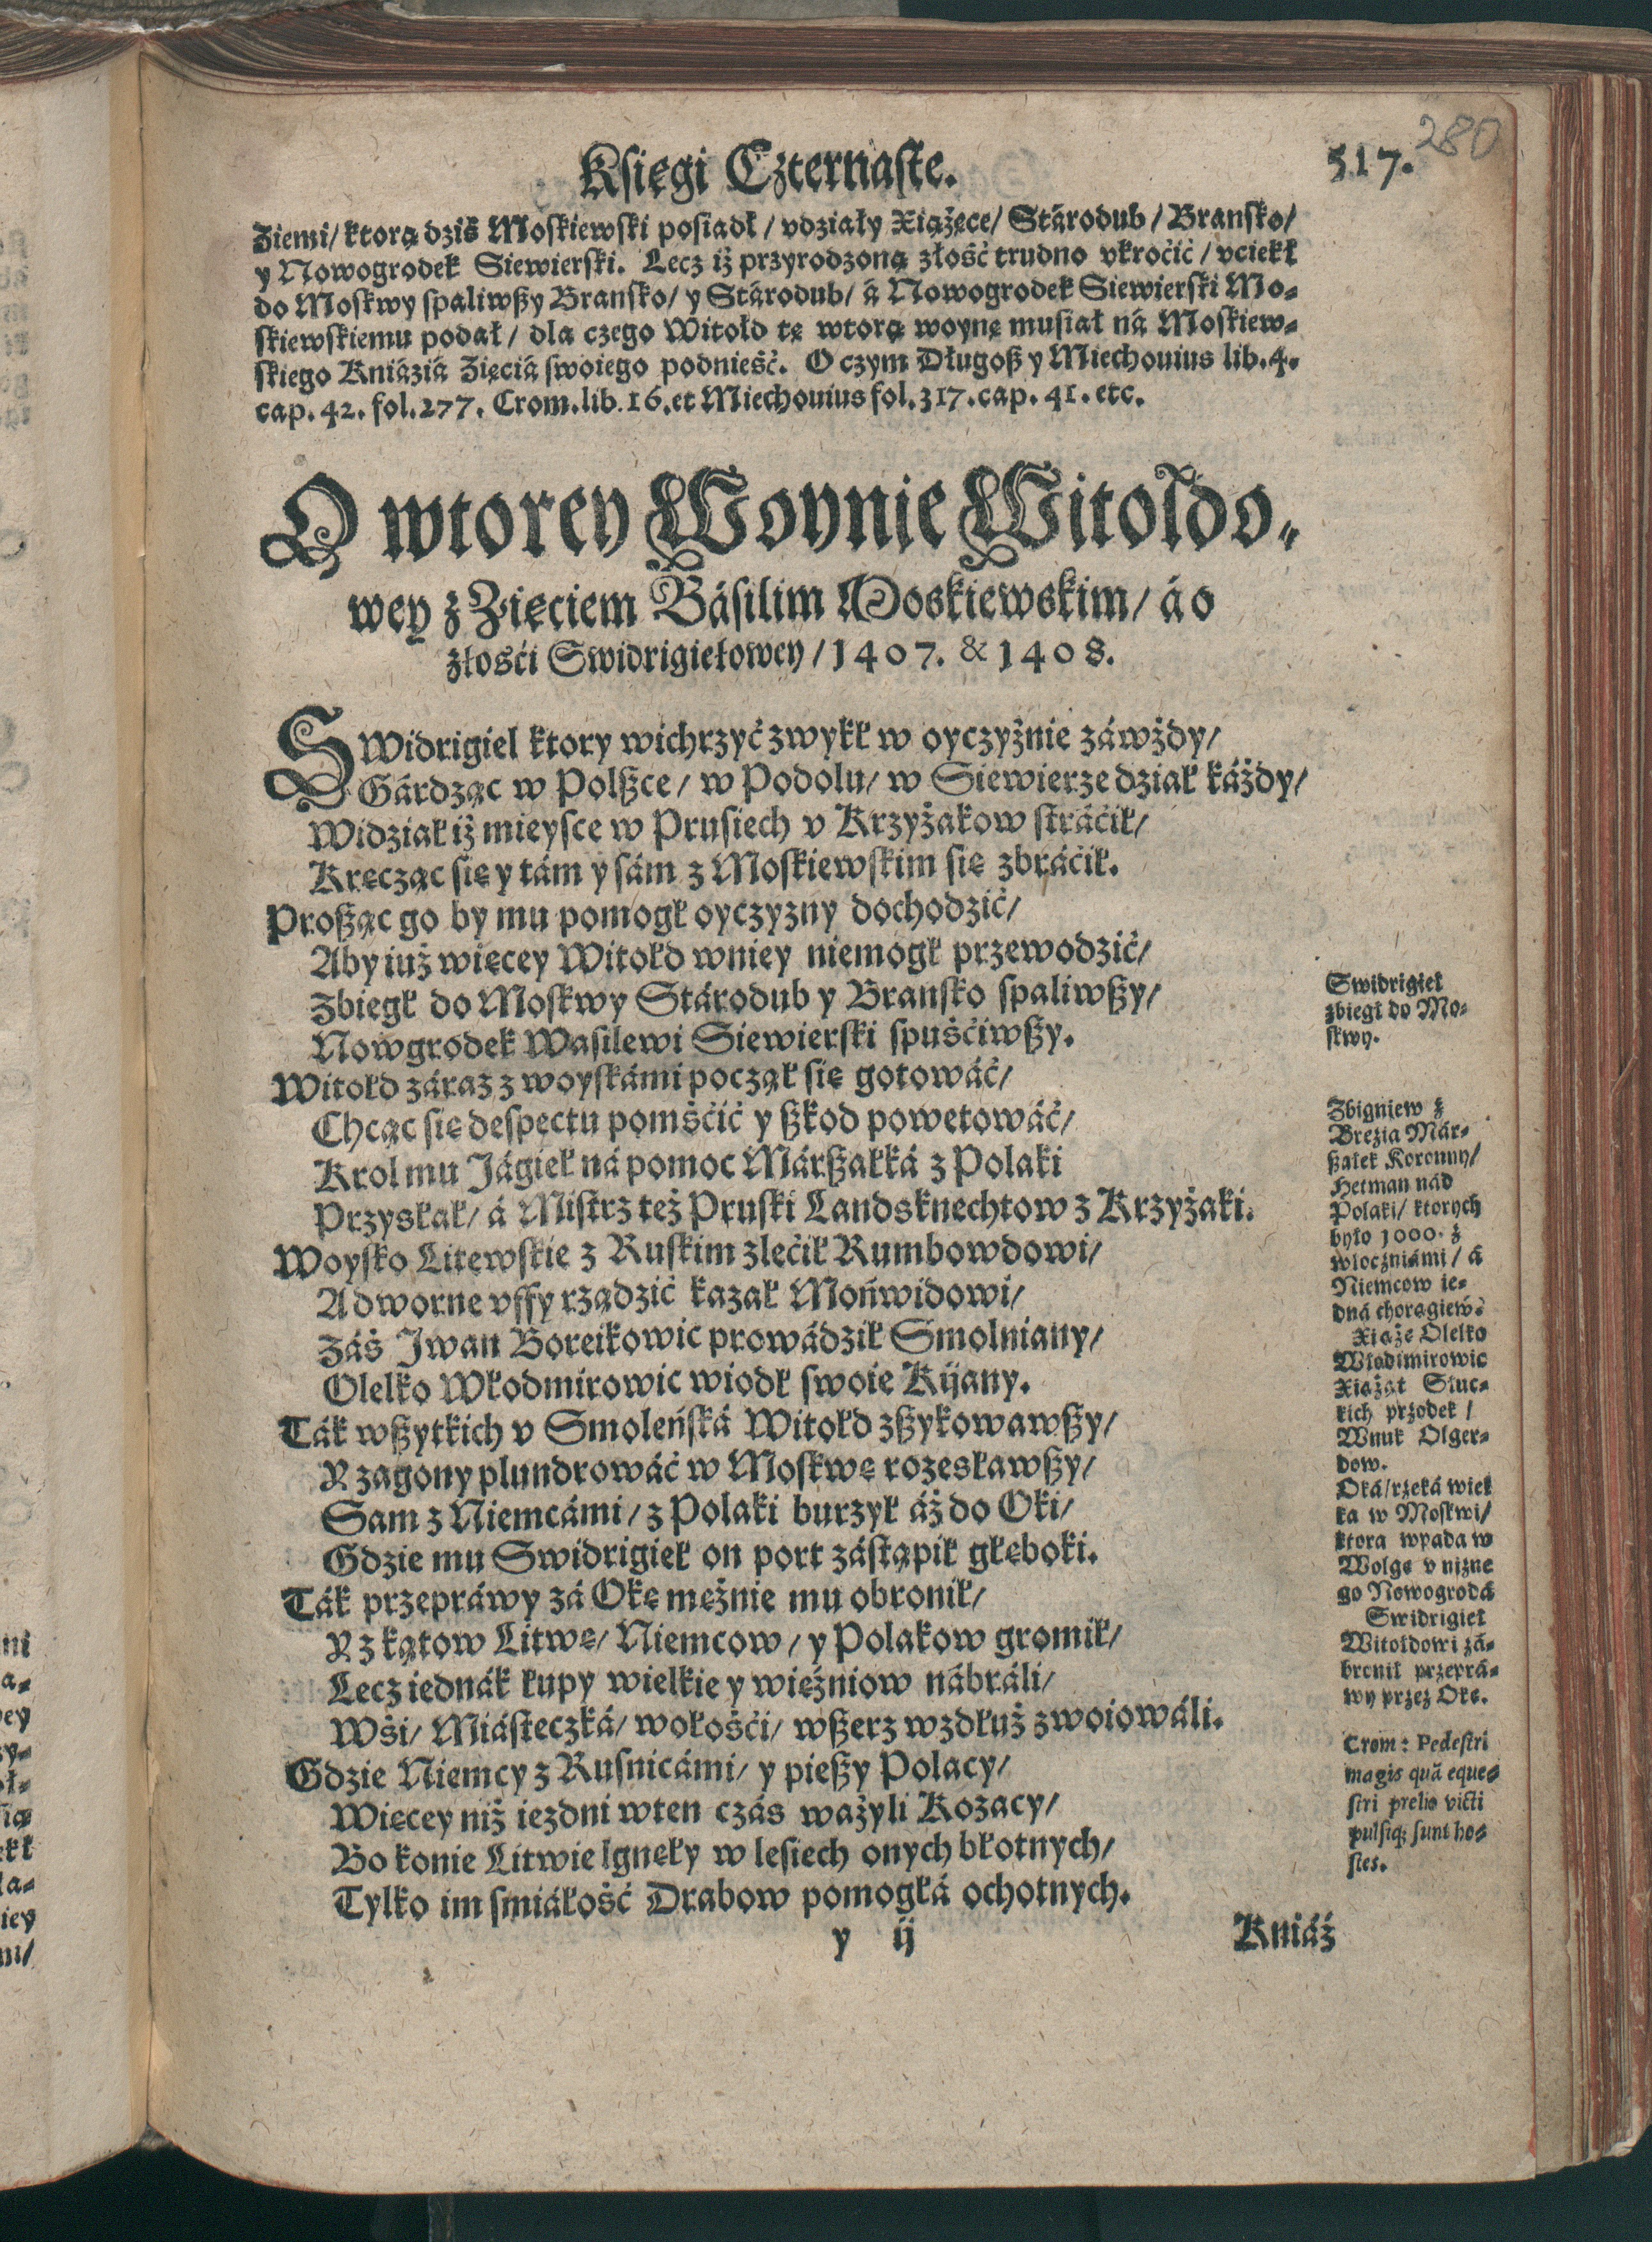 Księgi Czternaste.
517.
280
Ziemi/ ktorą dziś Moskiewski posiadł / vdziały Xiążęce/ Stárodub / Bransko/
y Nowogrodek Siewierski. Lecz iż przyrodzoną złość trudno vkroćić / vciekł
do Moskwy spaliwszy Bransko/ y Stárodub/ á Nowogrodek Siewierski Mo-
skiewskiemu podał / dla czego Witołd tę wtorą woynę musiał ná Moskiew-
skiego Kniáziá Zięciá swoiego podnieść. O czym Długosz y Miechouius lib. 4.
cap. 42. fol. 277. Crom. lib. 16. et Miechouius fol. 317. cap. 41. etc.
O wtorey Woynie Witołdo-
wey z Zięciem Básilim Moskiewskim/ á o
złośći Swidrigiełowey / 1407. & 1408.
SWidrigieł ktory wichrzyć zwykł w oyczyźnie záwżdy/
Gárdząc w Polszce/ w Podolu/ w Siewierze dział káżdy/
Widział iż mieysce w Prusiech v Krzyżakow stráćił/
Kręcząc się y tám y sám z Moskiewskim się zbráćił.
Prosząc go by mu pomogł oyczyzny dochodzić/
Aby iuż więcey Witołd wniey niemogł przewodzić/
Zbiegł do Moskwy Stárodub y Bransko spaliwszy/
Nowgrodek Wasilewi Siewierski spuśćiwszy.
Witołd záraz z woyskámi począł się gotowáć/
Chcąc się despectu pomśćić y szkod powetowáć/
Krol mu Jágieł ná pomoc Márszałká z Polaki
Przysłał/ á Mistrz też Pruski Landsknechtow z Krzyżaki.
Woysko Litewskie z Ruskim zlećił Rumbowdowi/
A dworne vffy rządzić kazał Mońwidowi/
Záś Jwan Boreikowic prowádził Smolniany/
Olelko Włodmirowic wiodł swoie Kijany.
Ták wszytkich v Smoleńská Witołd zszykowawszy/
Y zagony plundrowáć w Moskwę rozesławszy/
Sam z Niemcámi/ z Polaki burzył áż do Oki/
Gdzie mu Swidrigieł on port zástąpił głęboki.
Ták przepráwy zá Okę mężnie mu obronił/
Y z kątow Litwę/ Niemcow / y Polakow gromił/
Lecz iednák łupy wielkie y więźniow nábráli/
Wśi/ Miásteczká/ wołośći/ wszerz wzdłuż zwoiowáli.
Gdzie Niemcy z Rusnicámi/ y pieszy Polacy/
Więcey niż iezdni wten czás ważyli Kozacy/
Bo konie Litwie lgnęły w lesiech onych błotnych/
Tylko im smiáłość Drabow pomogłá ochotnych.
y ij
Kniáź
Swidrigieł
zbiegł do Mo-
skwy.
Zbigniew z
Brezia Már-
szałek Koronny/
Hetman nád
Polaki/ ktorych
było 1000. z
włoczniámi / á
Niemcow ie-
dná chorągiew.
Xiąże Olelko
Władimirowic
Xiążąt Słuc-
kich przodek /
Wnuk Olger-
dow.
Oká/ rzeká wiel
ka w Moskwi/
ktora wpada w
Wolgę v niżne
go Nowogrodá
Swidrigieł
Witołdowi zá-
bronił przeprá-
wy przez Okę.
Crom: Pedestri
magis quã eque-
stri prelio victi
pulsiq; sunt ho-
stes.